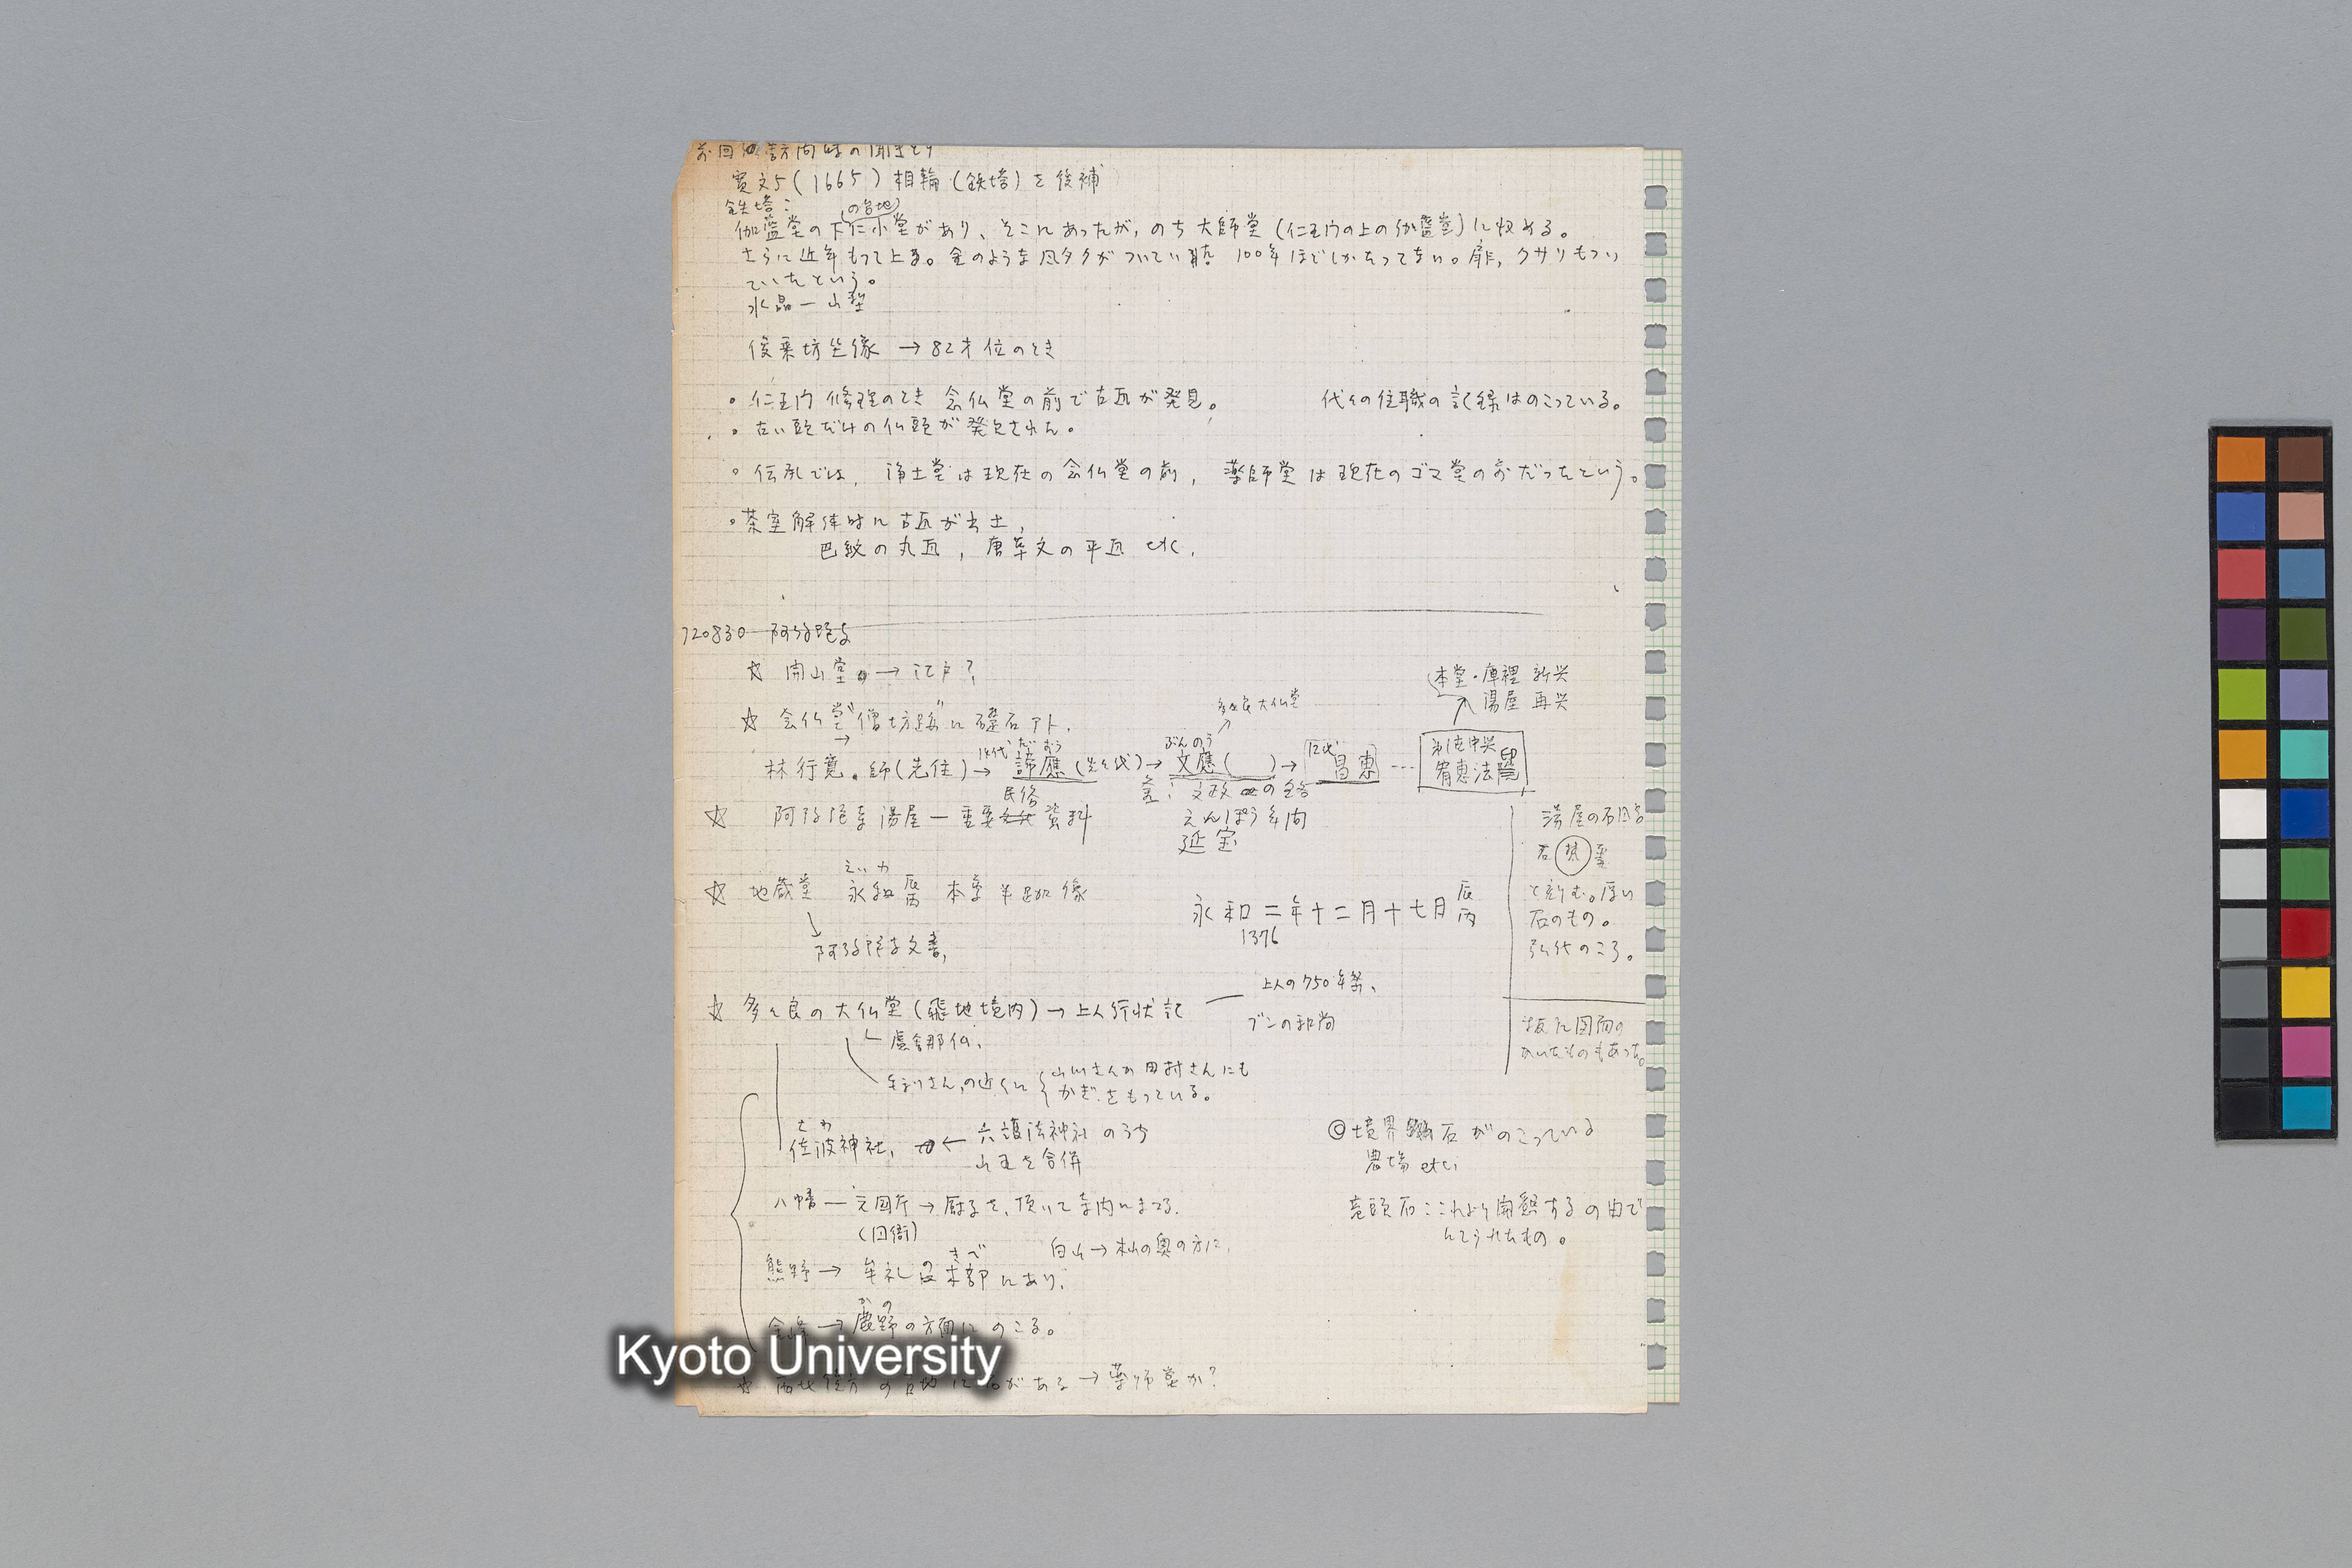 前回の訪問時の聞きとり
寛文5(1665)相輪(鉄塔)を後補
鉄塔:
(の台地)
伽藍堂の下に小堂があり、そこにあったが,のち大師堂(仁王門の上の伽藍堂)に収める。
さらに近年もって上る。金のような風タクがついてい 100年ほどしかたってない。扉,クサリもつい
ていたという。
水晶一山型
俊乗坊坐像 → 82才位のとき
・仁王門修理のとき念仏堂の前で古瓦が発見。
代々の住職の記録はのこっている。
・古い頭だけの仏頭が発見された。
・伝承では,浄土堂は現在の念仏堂の前,薬師堂は現在のゴマ堂の前だったという。
・茶室解体時に古瓦が出土,
巴紋の丸瓦,唐草文の平瓦 etc.
720830 阿弥陀寺
☆ 開山堂 → 江戸?
本堂・庫裡 新興
湯屋 再興
多々良大仏堂
☆ 念仏堂"僧坊跡"に礎石アト.
林行寛。師(先住)→ 諦應(先々代)→ 文應( )→ 12代 昌恵 … 第1世中興 宥恵法印
民俗
☆ 阿弥陀寺湯屋ー重要 資料
えんぽう年間
延宝
湯屋の石風呂
と刻む。厚い
石のもの。
☆ 地蔵堂 永和 丙辰 本尊半跏像
えいわ
永和二年十二月十七日 丙辰
1376
阿弥陀寺文書,
☆ 多々良の大仏堂(飛地境内)→ 上人行状記
上人の750年祭、
盧舎那仏,
板に図面の
かいたものもあった。
牟礼さん,の近くに { 山川さんか田村さんにも
かぎをもっている。
さわ
佐波神社, ← 六護法神社のうち
山王を合併
© 境界 石がのこっている
農場 etc,
八幡 ー 元国庁 → 厨子を,頂いて寺内にまつる.
(国衙)
竜頭石:これより開墾するの由で
白山 → 本山の奥の方に,
きべ
熊野 → 牟礼の木部にあり,
かの
金峰 → 鹿野の方面にのこる。
Kyoto University
☆ がある → 薬師堂か?